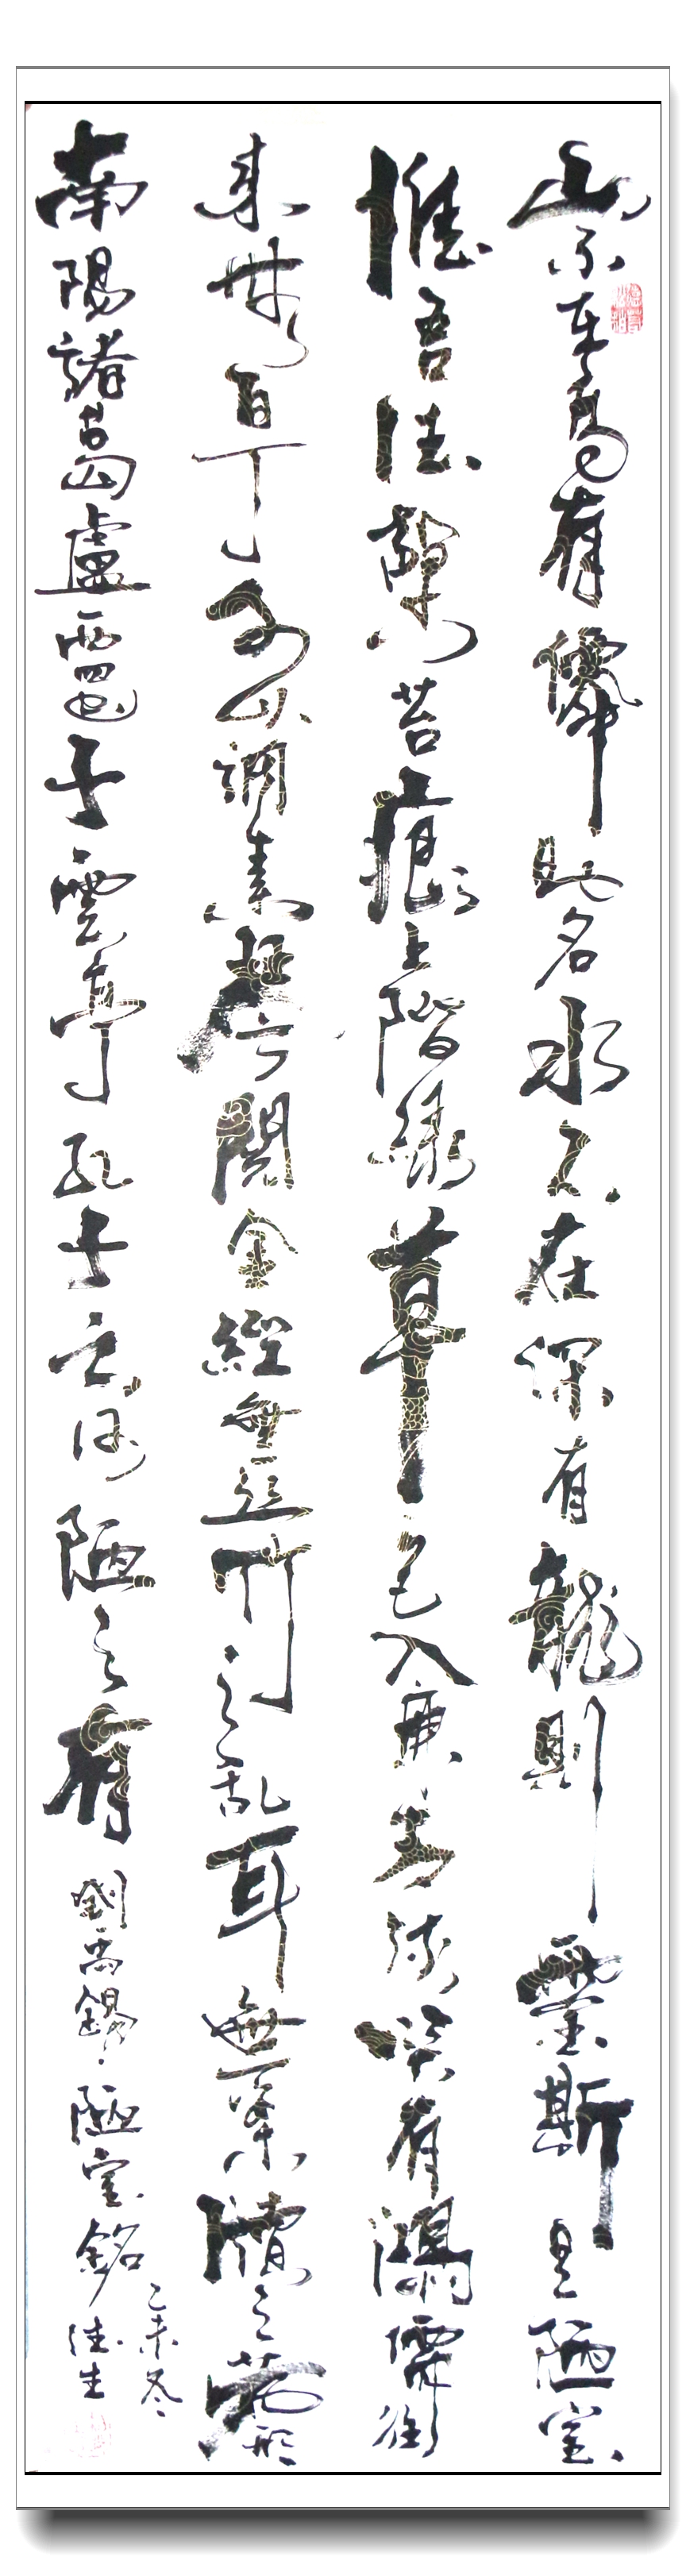 山不在高有僊則名水不在深有龍則靈斯是陋室
惟吾德馨苔痕上階綠草色入簾青談笑有鴻儒往
來無白丁可以調素琴閱金經無絲竹之乱耳無案牘之勞形
南陽諸葛廬西蜀子雲亭孔子云何陋之有 劉禹錫陋室銘
乙未冬
生